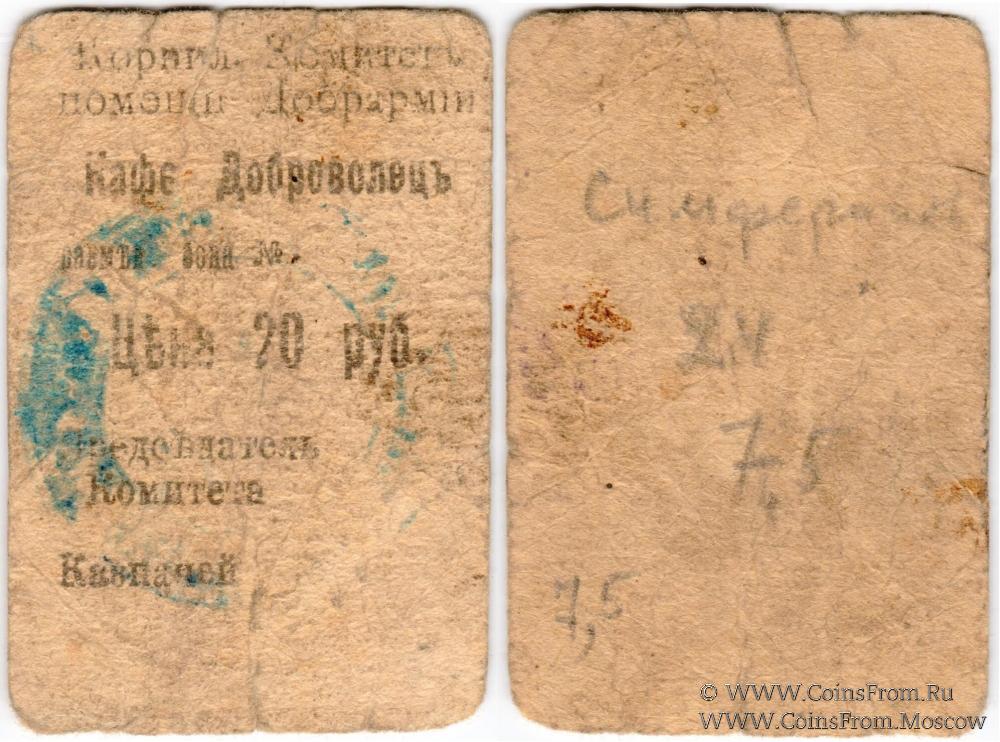 Корнил. Комитетъ
помощи Добрармiи
Кафе Доброволецъ
бона №
Цѣна 20 руб.
Предсѣдатель
Комитета
Казначей
Симферополь
24
7,5
7,5
© WWW.CoinsFrom.Ru
WWW.CoinsFrom.Moscow